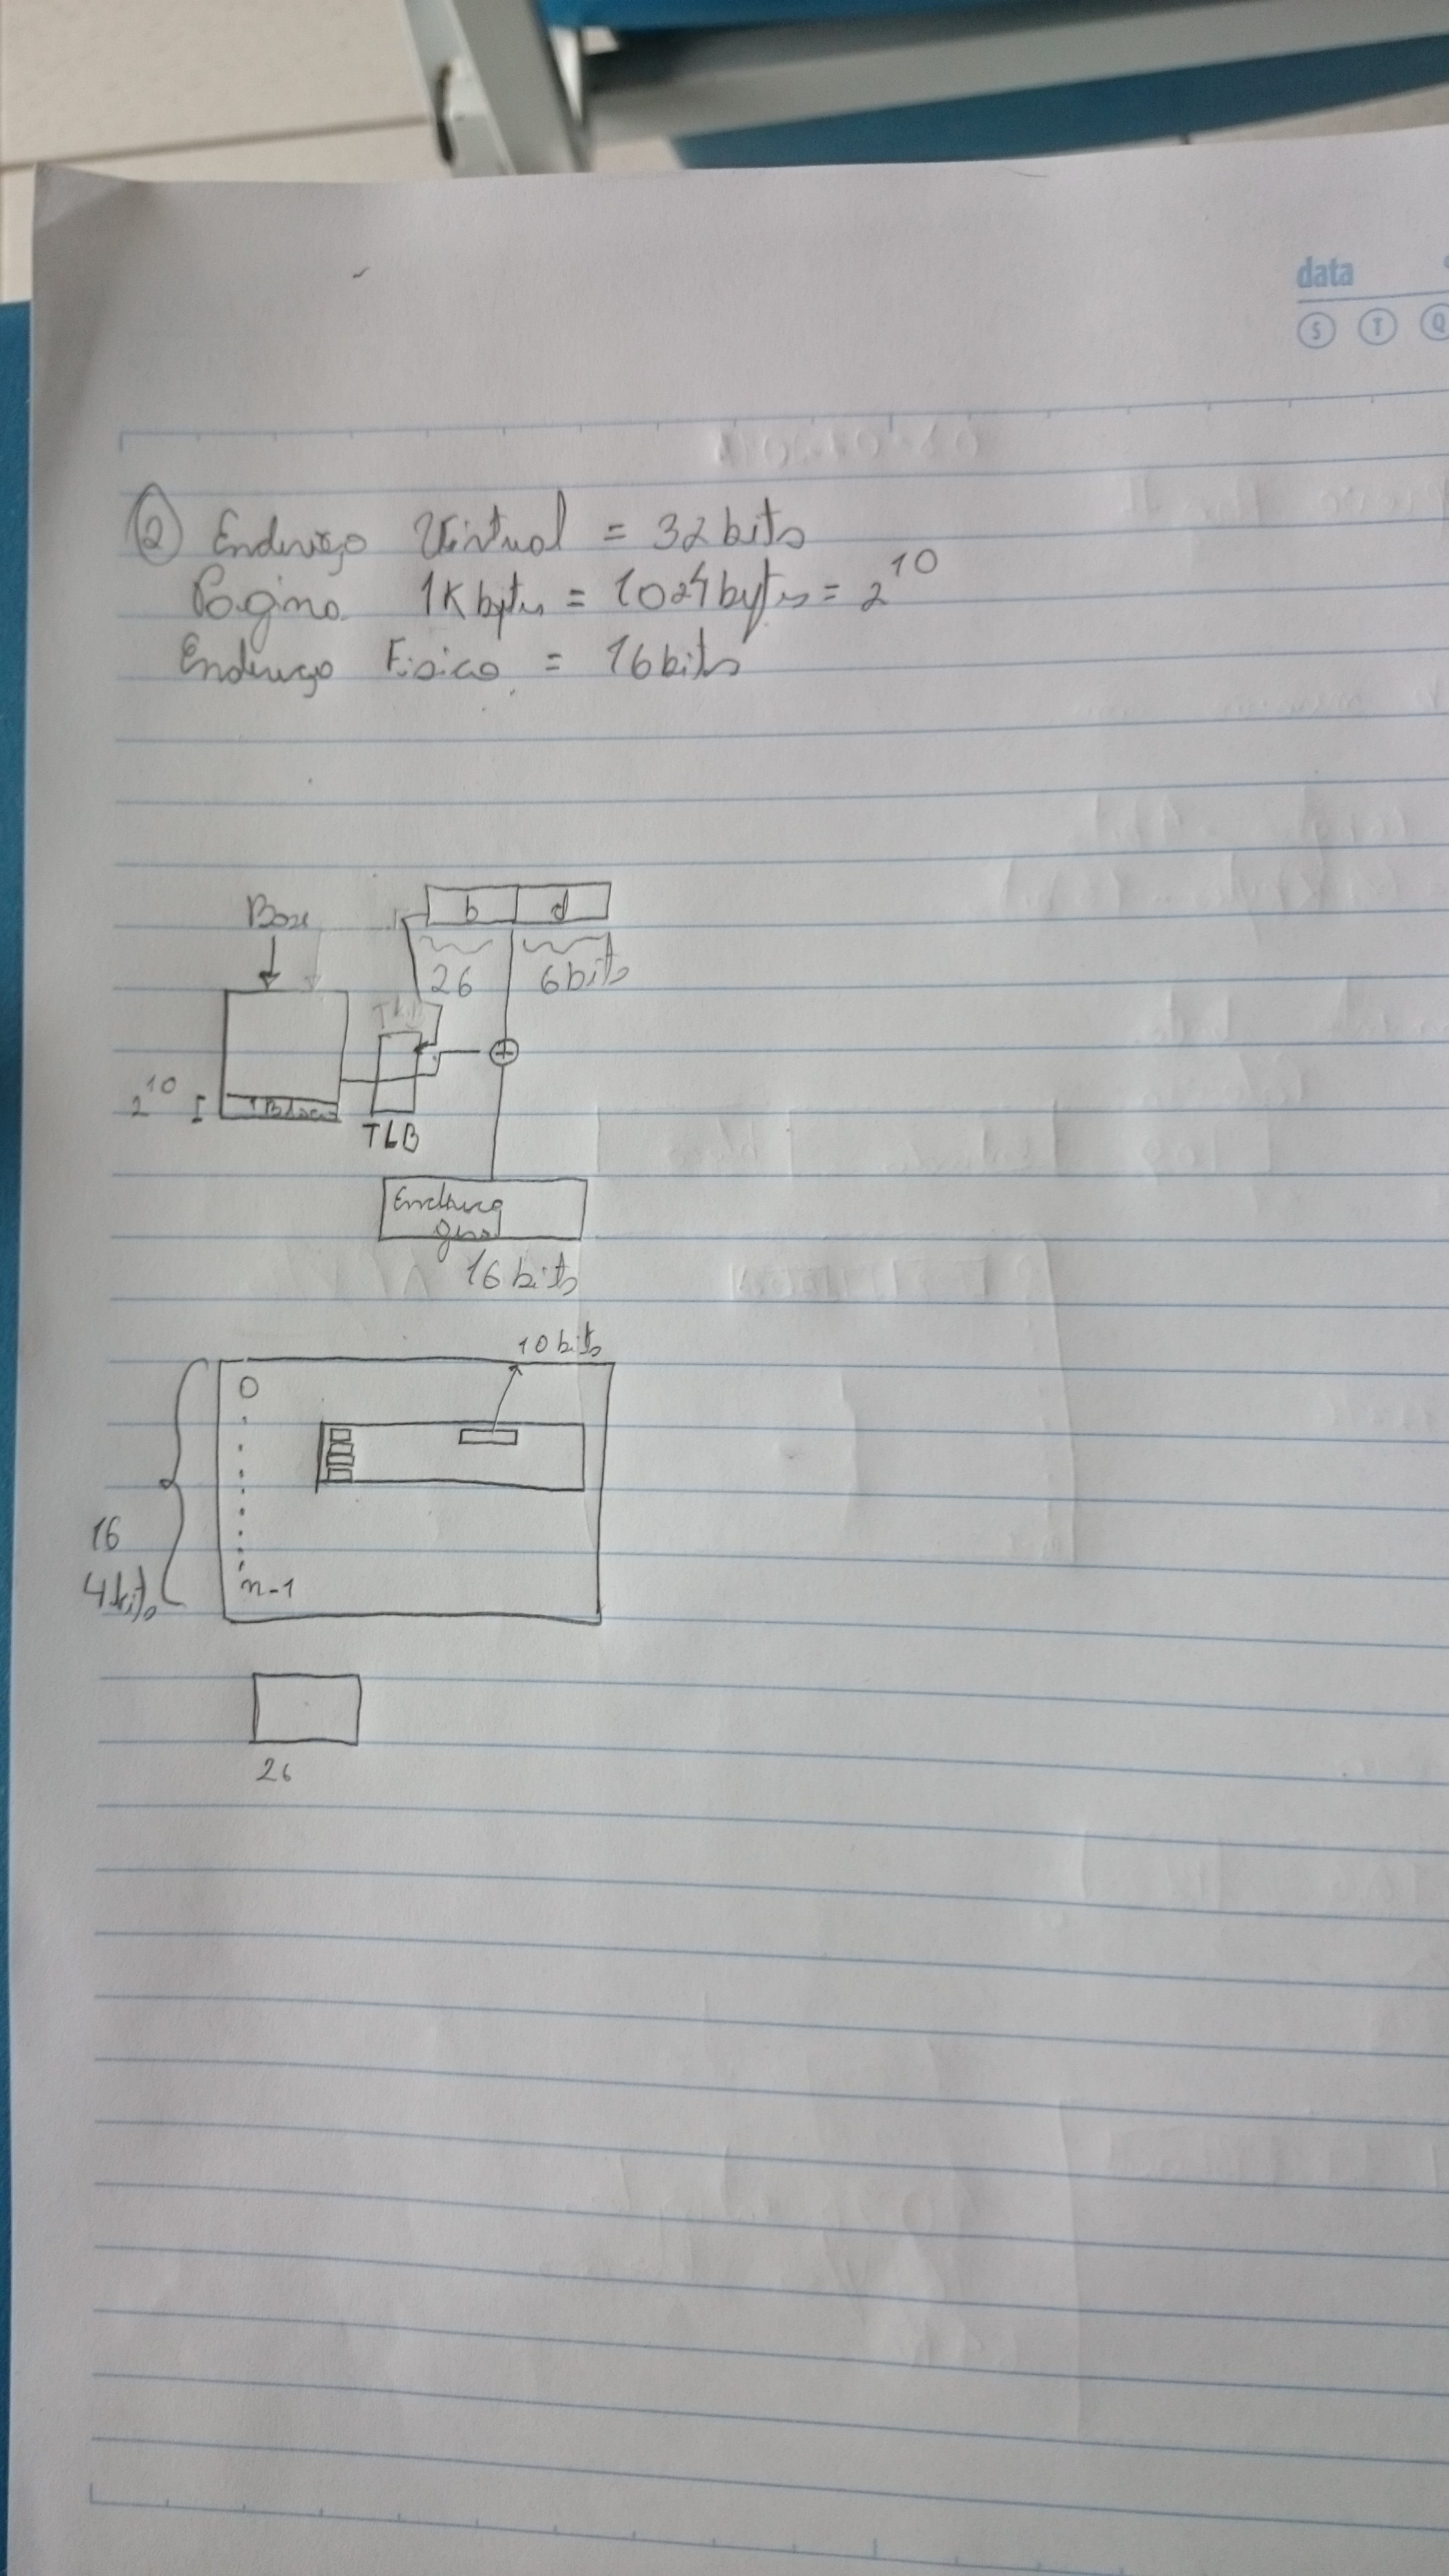 data
S T Q
② Endereço Virtual = 32 bits
Pagina 1K bytes = 1024 bytes = 2^10
Endereço Fisico = 16 bits
b d
Base
26 6 bits
TLB
2^10 I 1 Bloco
TLB
Endereço
geral
16 bits
10 bits
0
16
4 bits
n-1
26